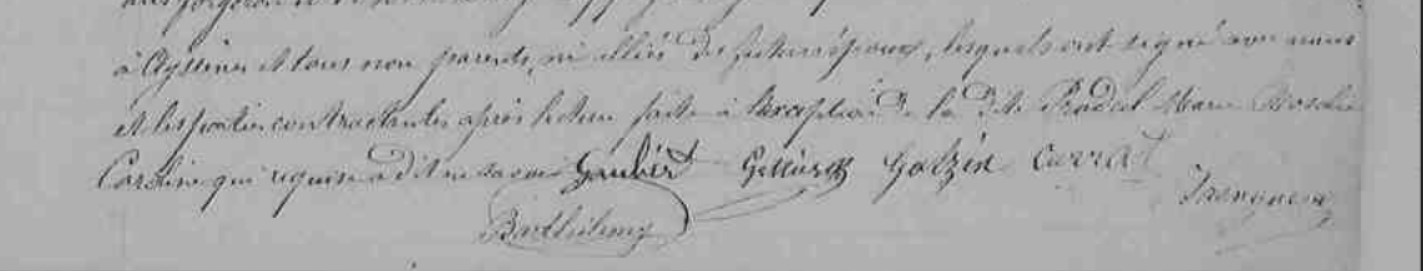 à Ayssènes et tous non parents, ni alliés des futurs époux, lesquels ont signé avec nous
et les parties contractantes après lecture faite à l'exception de la dite Pradal Marie Rosalie
Caroline qui requise a dit ne savoir Gaubert Galzin Carrat
Barthélemy